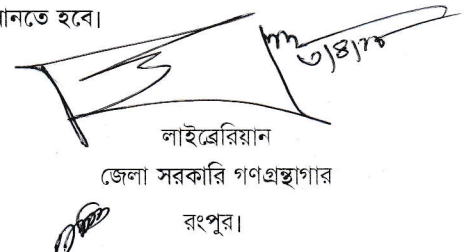 ানতে হবে।
লাইব্রেরিয়ান
জেলা সরকারি গণগ্রন্থাগার
রংপুর।